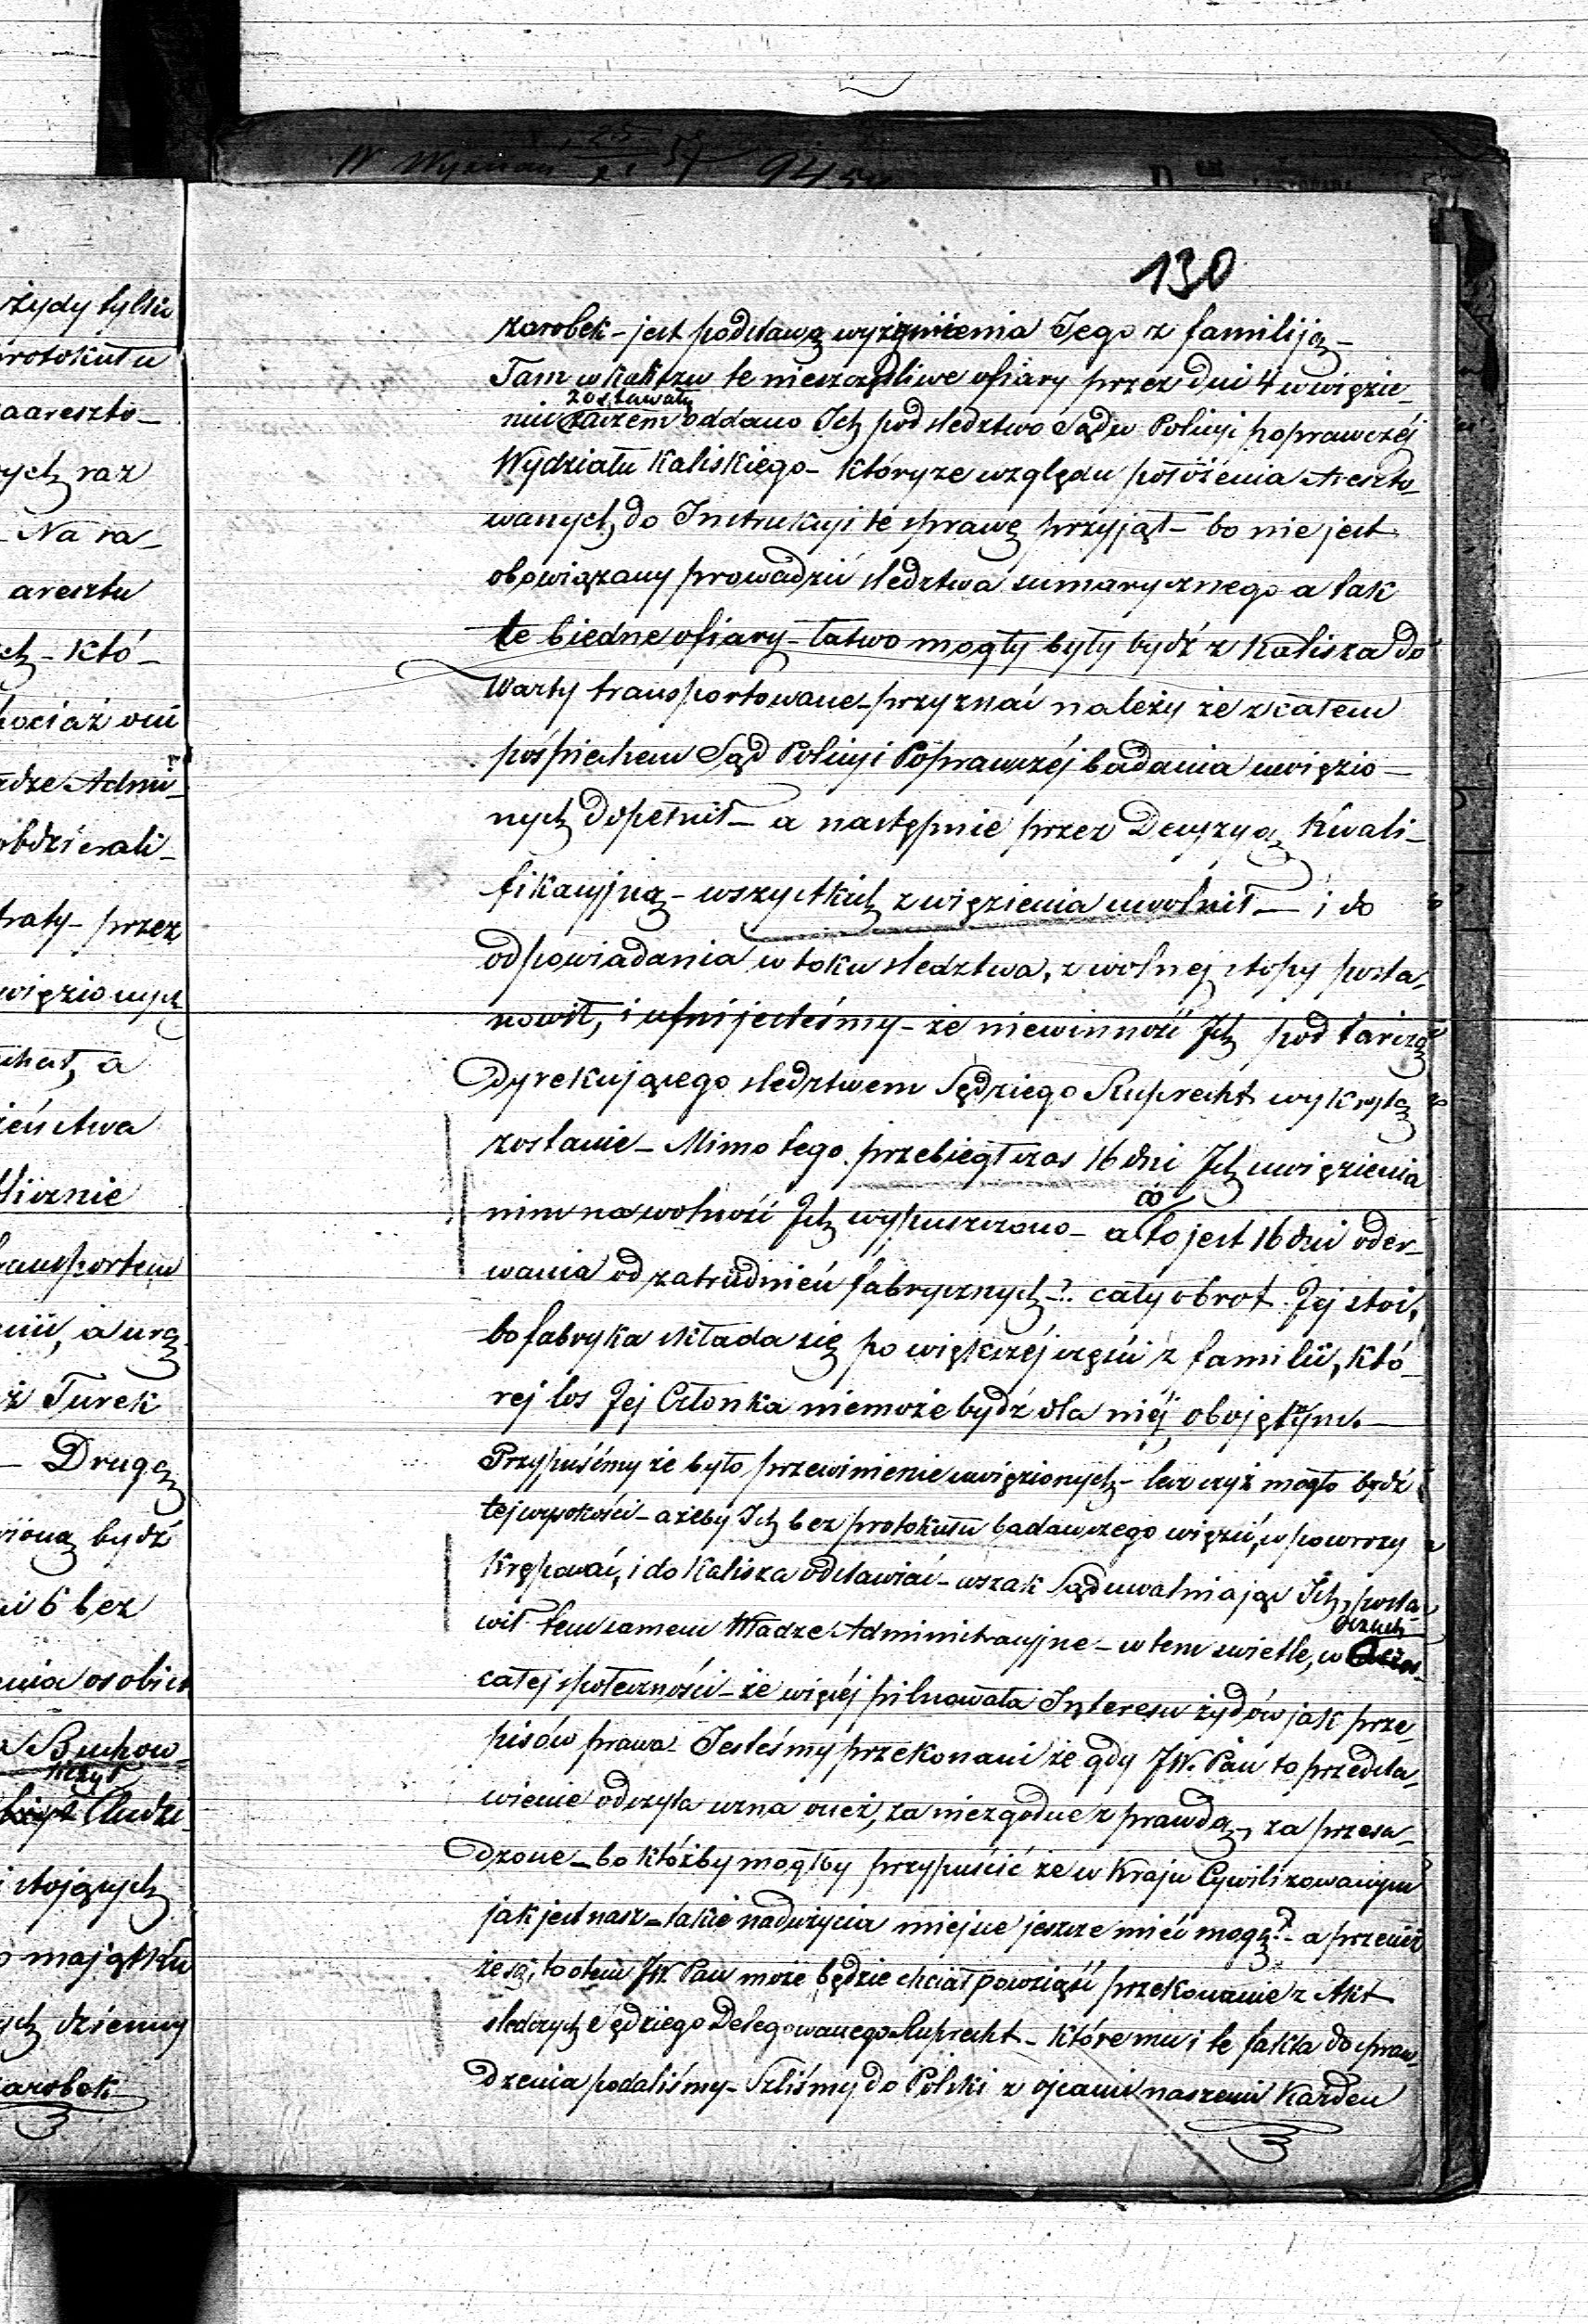 130
zarobek – jest podstawą wyżywienia Jego z familiją –
Tam w Kaliszu te nieszczęśliwe ofiary przez dni 4 w więzie–
zostawały
niu zaczem oddano Ich pod sledztwo Sądu Policyi poprawczéj
Wydziału Kaliskiego – który ze względu położenia Areszto–
wanych, do Instrukcyi tę sprawę przyjął – bo nie jest
obowiązany prowadzić sledztwa sumarycznego a tak
te biedne ofiary – łatwo mogły były bydź z Kalisza do
Warty transportowane – przyznać należy że z całem
pośpiechem Sąd Policyi Poprawczéj badania uwięzio–
nych dopełnił – a następnie przez Decyzyą Kwali–
fikacyjną – wszystkich z więzienia uwolnił – i do
odpowiadania w toku sledztwa, z wolnej stopy posta,
nowił, i ufni jesteśmy – że niewinność Ich pod tarczą
Dyrekującego sledztwem Sędziego Ruprecht wykrytą
zostanie – Mimo tego przebiegł czas 16 dni Ich uwięzienia
nim na wolność Ich wypuszczono – a co to jest 16 dni oder–
wania od zatrudnień fabrycznych –? cały obrot Jej stoi,
bo fabryka składa się po większéj części z familii, któ–
rej los Jej Członka niemoże bydź dla niéj obojętnym. –
Przypuśćmy że było przewinienie uwięzionych – lecz czyż mogło bydź
tej wysokości – ażeby Ich bez protokułu badawczego więzić, w powrozy
krępować, i do Kalisza odstawiać – wszak Sąd uwalniając Ich, posta–
oczach
wił tem samem Władze Administracyjne – w tem swietle, w
całej społeczności – że więcéj pilnowała Interesu żydów jak prze–
pisów prawa – Jesteśmy przekonani że gdy JW. Pan to przedsta,
wienie odczyta uzna one ż, za niezgodne z prawdą, za przesa–
dzone – bo któżby mógłby przypuścić że w Kraju Cywilizowanym
jak jest nasz – takie nadużycia miejsce jeszcze mieć mogą? – a przecież
że są, to o tem JW. Pan może będzie chciał powziąść przekonanie z Akt
sledczych Sędziego Delegowanego Ruprecht – któremu i te fakta do spraw–
dzenia podaliśmy – Szliśmy do Polski z ojcami naszemi Każden
żydy tylko
protokułu
zaareszto–
ych raz
– Na ra–
aresztu
ch – któ–
chociaż oni
adze Admi–
obdzierali –
traty – przez
więzionych
chał, a
zeństwa
ślicznie
ransportem
ż Turek
– Drugą
bydź
i 6 bez
enia osobist
Buchow–
stojących
majątku
ych dzienny
zarobek